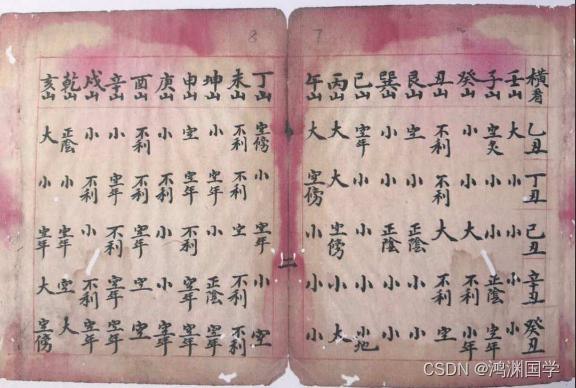 7
橫看 乙丑 丁丑 己丑 辛丑 癸丑
壬山 大 小 小 小 小
子山 空 小 小 正陰 空年
癸山 小 小 大 不利 小年
丑山 不利 不利 大 不利 空
艮山 空 小 正陰 小 小
巽山 小 小 正陰 小 小
巳山 空年 小 小 小 小地
丙山 大 大 空傍 小 大
午山 大 空傍 小 小 小
二
8
丁山 空傍 小 空年 小 空
未山 不利 不利 空 不利 不利
坤山 小 空年 小 正陰 空年
申山 空 空年 不利 空年 空年
庚山 小 不利 小 小 空年
酉山 不利 不利 空年 空 空
辛山 小 空年 不利 空年 空年
戌山 小 不利 小 不利 空年
乾山 正陰 小 空年 空 大
亥山 大 小 空年 大 空傍
CSDN @鸿渊国学